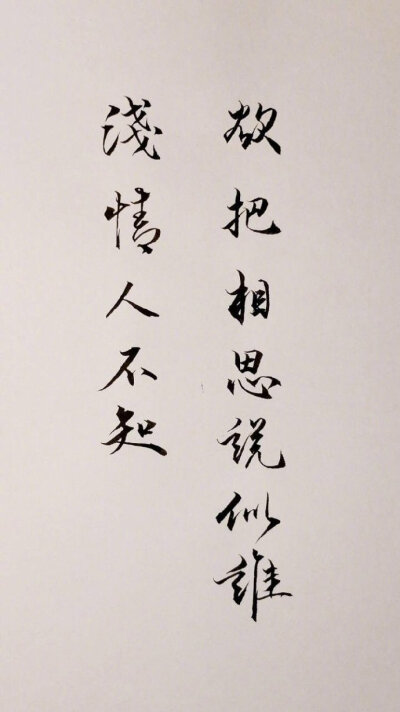 欲把相思説似誰
淺情人不知